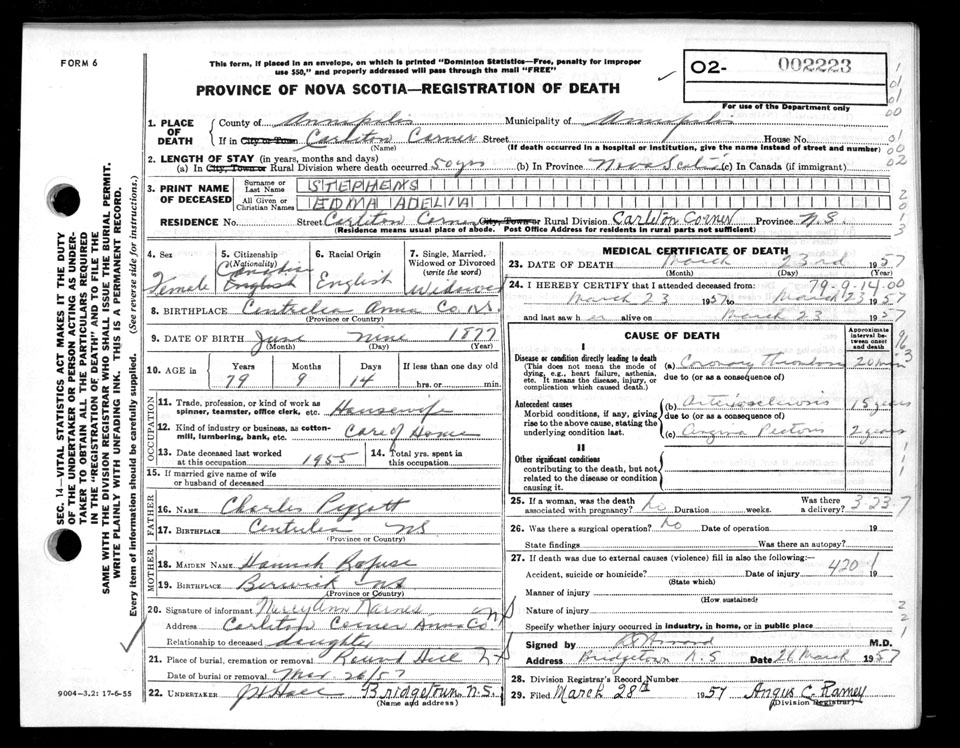 FORM 6
This form, if placed in an envelope, on which is printed "Dominion Statistics—Free, penalty for improper
use $50," and properly addressed will pass through the mail "FREE"
PROVINCE OF NOVA SCOTIA—REGISTRATION OF DEATH
O2- 002223
For use of the Department only
1. PLACE OF DEATH
County of Annapolis Municipality of Annapolis
If in City or Town Carleton Corner Street House No.
(Name) (If death occurred in a hospital or institution, give the name instead of street and number)
2. LENGTH OF STAY (in years, months and days)
(a) In City, Town or Rural Division where death occurred 50 yrs (b) In Province Nova Scotia (c) In Canada (if immigrant)
3. PRINT NAME OF DECEASED
Surname or Last Name STEPHENS
All Given or Christian Names EDMA ADELIA
RESIDENCE No. Street Carleton Corner City, Town or Rural Division Carleton Corner Province N.S.
(Residence means usual place of abode. Post Office Address for residents in rural parts not sufficient)
4. Sex Female
5. Citizenship (Nationality) Canadian English
6. Racial Origin English
7. Single, Married, Widowed or Divorced (write the word) Widowed
8. BIRTHPLACE Centrelea Anna Co. N.S.
(Province or Country)
9. DATE OF BIRTH June nine 1877
(Month) (Day) (Year)
10. AGE Years 79 Months 9 Days 14 If less than one day old hrs. or min.
OCCUPATION
11. Trade, profession, or kind of work as spinner, teamster, office clerk, etc. Housewife
12. Kind of industry or business, as cotton-mill, lumbering, bank, etc. Care of Home
13. Date deceased last worked at this occupation 1955
14. Total yrs. spent in this occupation
15. If married give name of wife or husband of deceased
FATHER
16. NAME Charles Piggott
17. BIRTHPLACE Centrelea NS
(Province or Country)
MOTHER
18. MAIDEN NAME Hannah Rafuse
19. BIRTHPLACE Berwick NS
(Province or Country)
20. Signature of informant Mary Ann
Address Carleton Corner Anna Co. NS
Relationship to deceased daughter
21. Place of burial, cremation or removal Round Hill NS
Date of burial or removal Mar. 26/57
22. UNDERTAKER Bridgetown, N.S.
(Name and address)
MEDICAL CERTIFICATE OF DEATH
23. DATE OF DEATH March 23rd 1957
(Month) (Day) (Year)
79-9-14.00
24. I HEREBY CERTIFY that I attended deceased from:
March 23 1957 to March 23 1957
and last saw her alive on March 23 1957
CAUSE OF DEATH
Approximate interval between onset and death
I
Disease or condition directly leading to death
(This does not mean the mode of dying, e.g., heart failure, asthenia, etc. It means the disease, injury, or complication which caused death.)
(a) Coronary Thrombosis 20 min
due to (or as a consequence of)
Antecedent causes
Morbid conditions, if any, giving rise to the above cause, stating the underlying condition last.
(b) Arteriosclerosis 15 years
due to (or as a consequence of)
(c) Angina Pectoris 2 years
II
Other significant conditions
contributing to the death, but not related to the disease or condition causing it.
25. If a woman, was the death associated with pregnancy? No Duration weeks. Was there a delivery? 3-23-7
26. Was there a surgical operation? No Date of operation 19
State findings Was there an autopsy?
27. If death was due to external causes (violence) fill in also the following:
Accident, suicide or homicide? Date of injury 19
420 1
(State which)
Manner of injury
(How sustained)
Nature of injury
Specify whether injury occurred in industry, in home, or in public place
Signed by M.D.
Address Bridgetown N.S Date 26 March 1957
28. Division Registrar's Record Number
29. Filed March 28th 1957 Angus C. Ramey
(Division Registrar)
SEC. 14—VITAL STATISTICS ACT MAKES IT THE DUTY
OF THE UNDERTAKER OR PERSON ACTING AS UNDERTAKER TO OBTAIN ALL THE PARTICULARS REQUIRED
IN THE "REGISTRATION OF DEATH" AND TO FILE THE
SAME WITH THE DIVISION REGISTRAR WHO SHALL ISSUE THE BURIAL PERMIT.
WRITE PLAINLY WITH UNFADING INK. THIS IS A PERMANENT RECORD.
Every item of information should be carefully supplied. (See reverse side for instructions.)
9004-3.2: 17-6-55